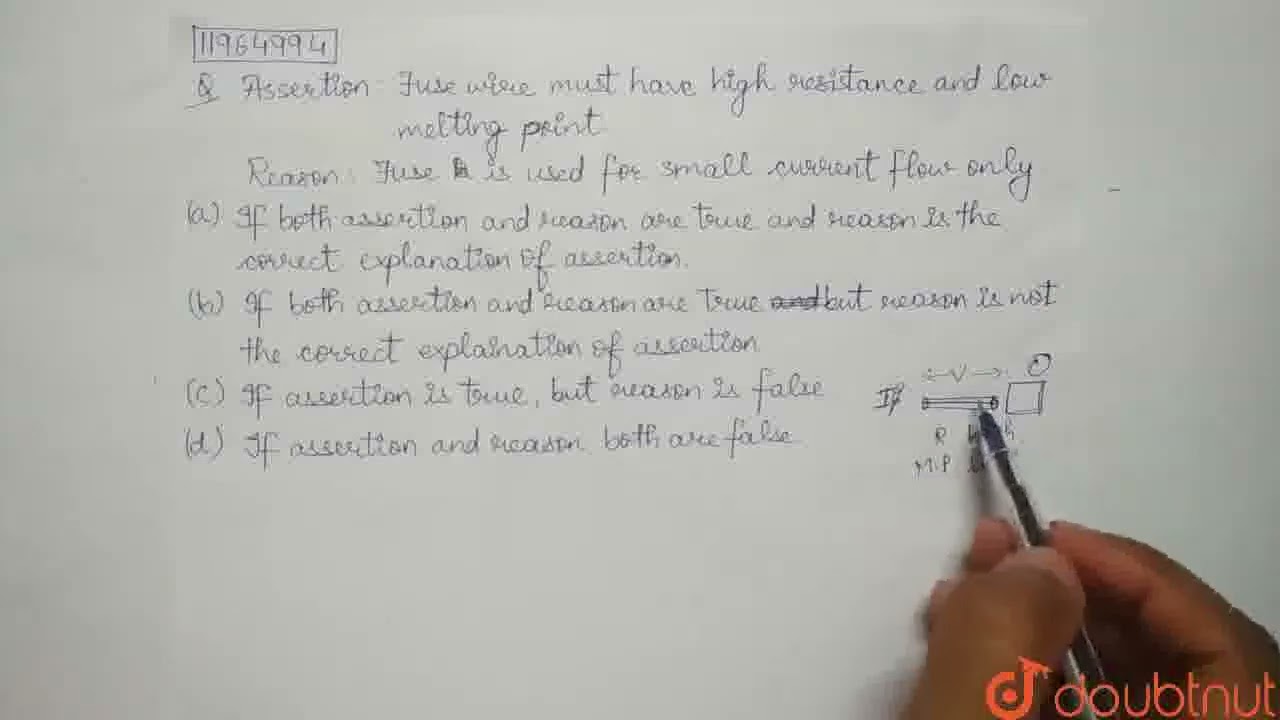 11964994
Q Assertion: Fuse wire must have high resistance and low
melting point
Reason: Fuse is used for small current flow only
(a) If both assertion and reason are true and reason is the
correct explanation of assertion.
(b) If both assertion and reason are true but reason is not
the correct explaination of assertion
(c) If assertion is true, but reason is false
(d) If assertion and reason both are false.
V
R
M.P
doubtnut